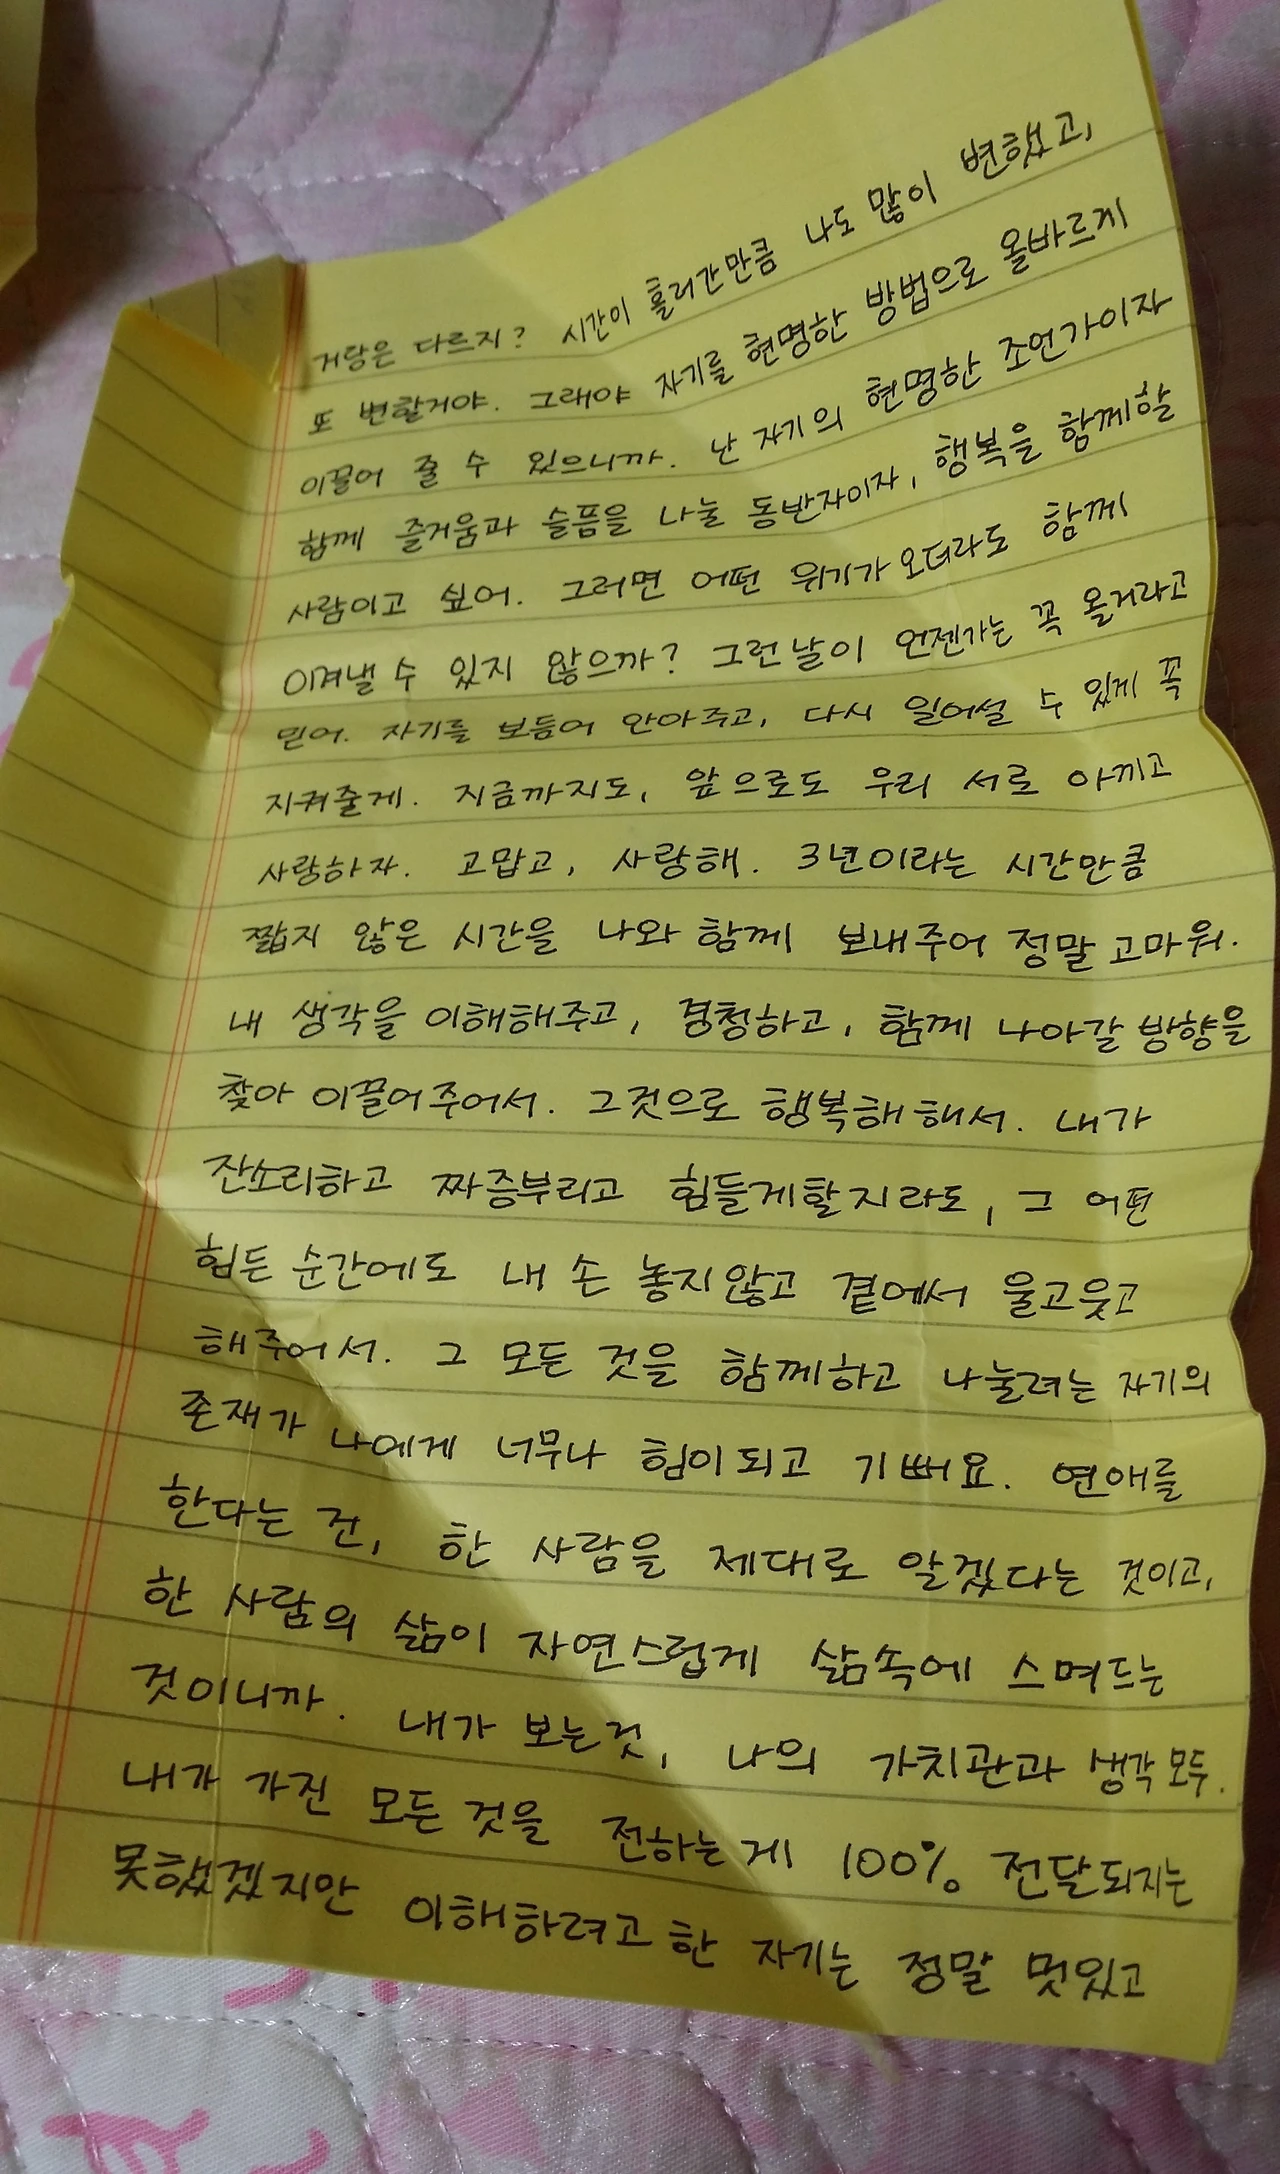 거랑은 다르지? 시간이 흘러간만큼 나도 많이 변했고,
또 변할거야. 그래야 자기를 현명한 방법으로 올바르게
이끌어 줄 수 있으니까. 난 자기의 현명한 조언가이자
함께 즐거움과 슬픔을 나눌 동반자이자, 행복을 함께할
사람이고 싶어. 그러면 어떤 위기가 오더라도 함께
이겨낼 수 있지 않으까? 그런날이 언젠가는 꼭 올거라고
믿어. 자기를 보듬어 안아주고, 다시 일어설 수 있게 꼭
지켜줄게. 지금까지도, 앞으로도 우리 서로 아끼고
사랑하자. 고맙고, 사랑해. 3년이라는 시간만큼
짧지 않은 시간을 나와 함께 보내주어 정말 고마워.
내 생각을 이해해주고, 경청하고, 함께 나아갈 방향을
찾아 이끌어주어서. 그것으로 행복해해서. 내가
잔소리하고 짜증부리고 힘들게할지라도, 그 어떤
힘든 순간에도 내 손 놓지않고 곁에서 울고웃고
해주어서. 그 모든 것을 함께하고 나눌려는 자기의
존재가 나에게 너무나 힘이되고 기뻐요. 연애를
한다는 건, 한 사람을 제대로 알겠다는 것이고,
한 사람의 삶이 자연스럽게 삶속에 스며드는
것이니까. 내가 보는것, 나의 가치관과 생각 모두.
내가 가진 모든 것을 전하는게 100% 전달되지는
못했겠지만 이해하려고 한 자기는 정말 멋있고